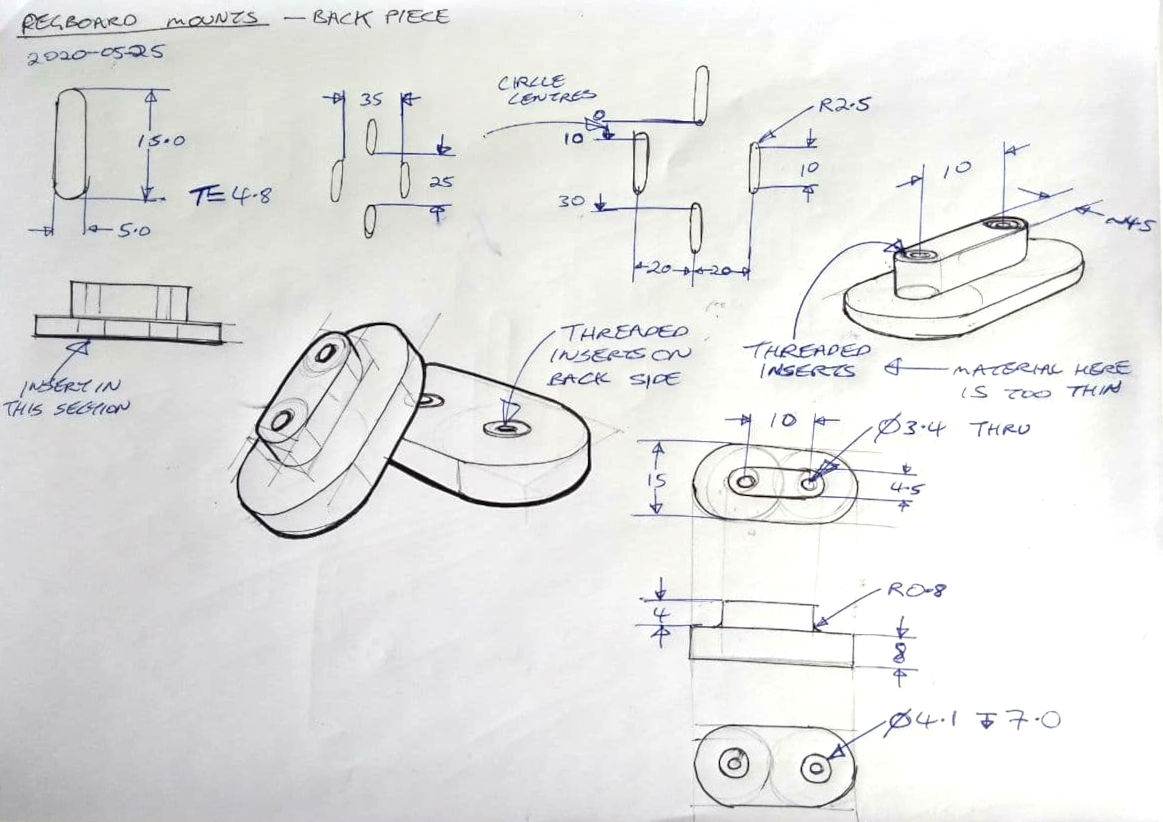 PEGBOARD MOUNTS — BACK PIECE
2020-05-25
15.0
5.0
T=4.8
35
25
CIRCLE
CENTRES
0
10
30
20
20
R2.5
10
10
~4.5
INSERT IN
THIS SECTION
THREADED
INSERTS ON
BACK SIDE
THREADED
INSERTS
MATERIAL HERE
IS TOO THIN
10
Ø3.4 THRU
15
4.5
4
R0.8
8
Ø4.1 ↧ 7.0